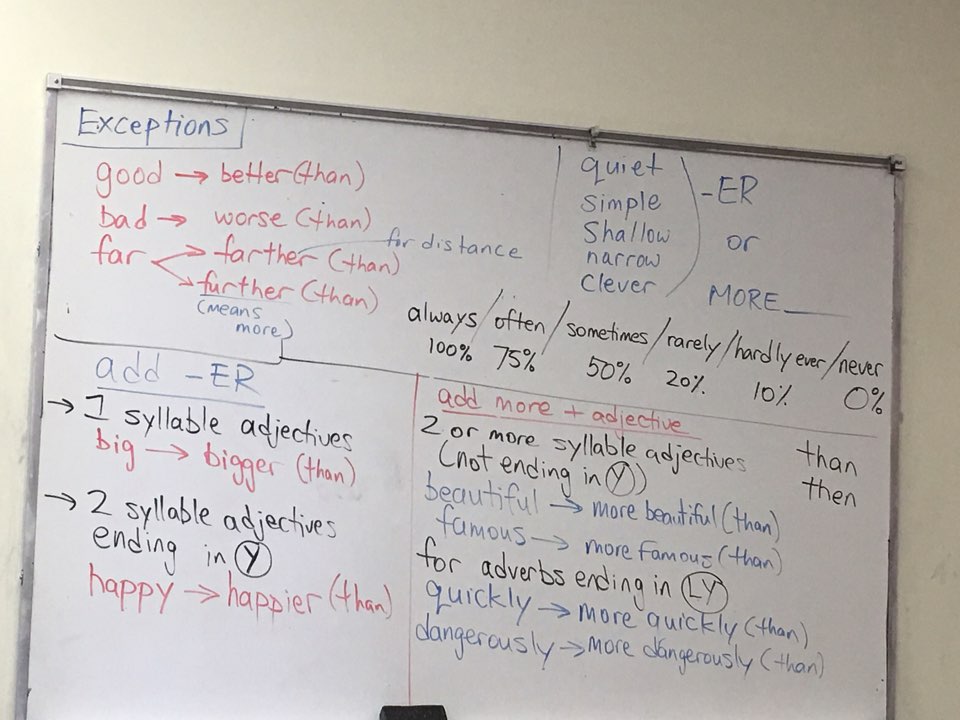 Exceptions
good → better (than)
bad → worse (than)
far → farther (than)
for distance
→ further (than)
(means
more)
quiet
simple
Shallow
narrow
Clever
-ER
or
MORE____
always / often / sometimes / rarely / hardly ever / never
100% 75% 50% 20% 10% 0%
add -ER
→ 1 syllable adjectives
big → bigger (than)
→ 2 syllable adjectives
ending in Y
happy → happier (than)
add more + adjective
2 or more syllable adjectives
(not ending in Y)
beautiful → more beautiful (than)
famous → more famous (than)
for adverbs ending in LY
quickly → more quickly (than)
dangerously → more dangerously (than)
than
then